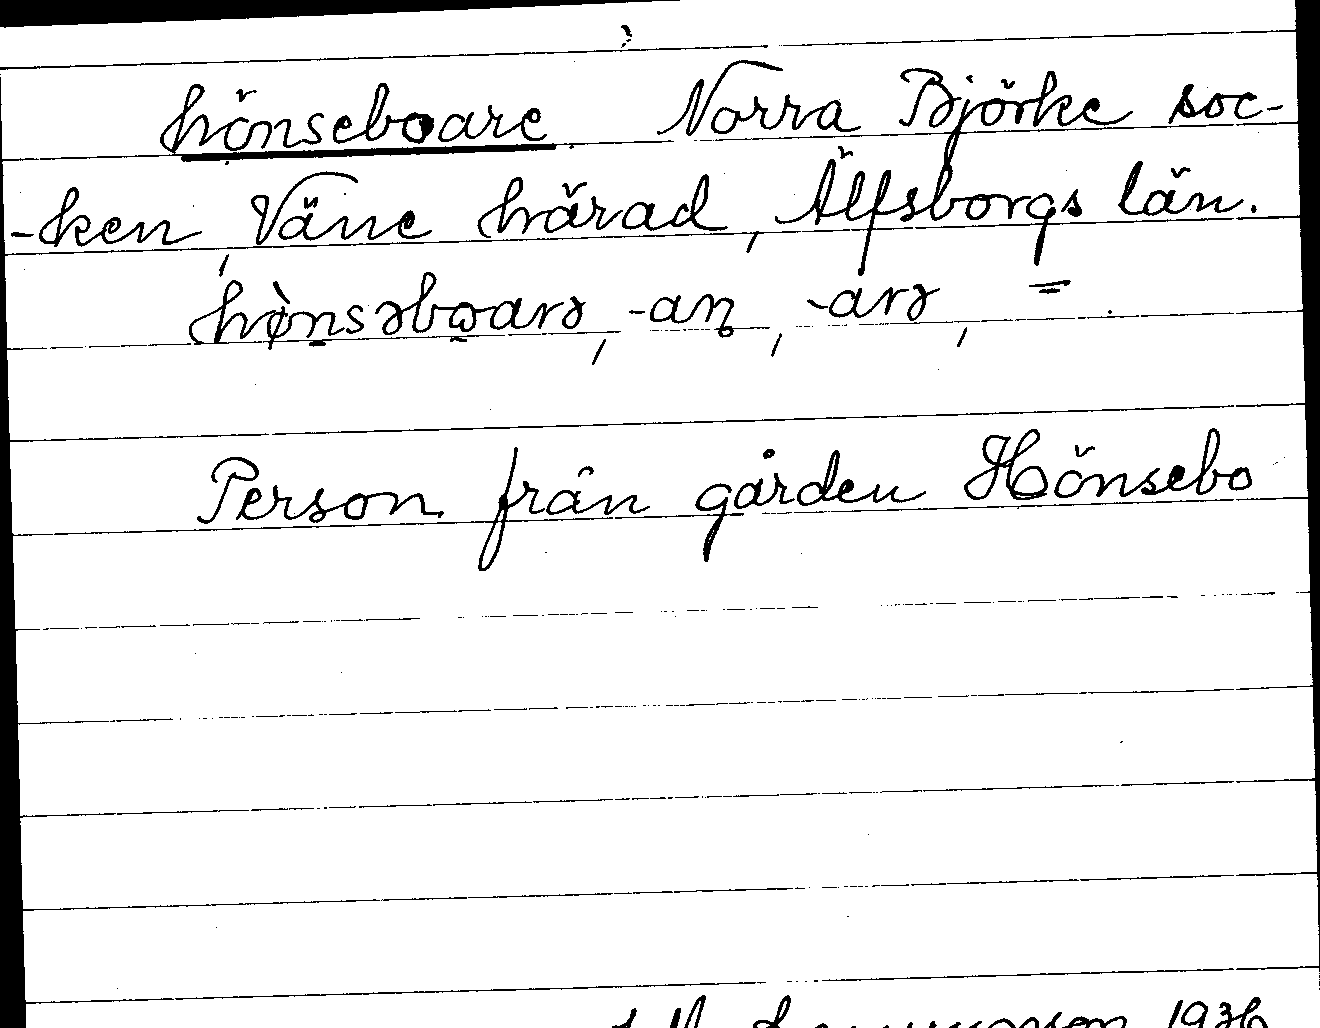 hönseboare. Norra Björke soc-
-ken, Väne härad, Älfsborgs län.
hø̀nsəboarə, -aṇ, -arə, =.
Person från gården Hönsebo
1936